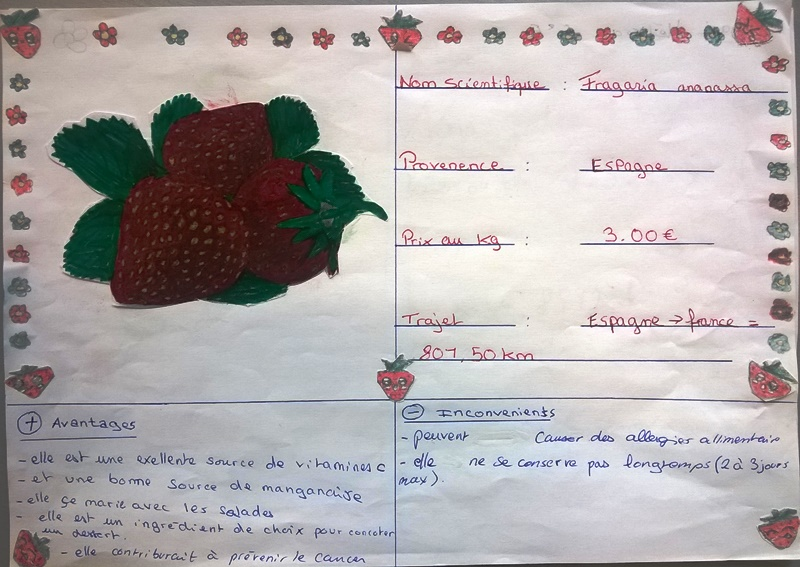 Nom Scientifique : Fragaria ananassa
Provenence : Espagne
Prix au Kg : 3.00€
Trajet : Espagne → france =
807,50 km
+ Avantages
- elle est une exellente source de vitamines c
- et une bonne source de manganaise
- elle se marie avec les salades
- elle est un ingrédient de choix pour concoter
un dessert.
- elle contriburait à prévenir le cancer
- Inconvenients
- peuvent Causer des allergies allimentaire
- elle ne se conserve pas longtemps (2 à 3 jours
max).